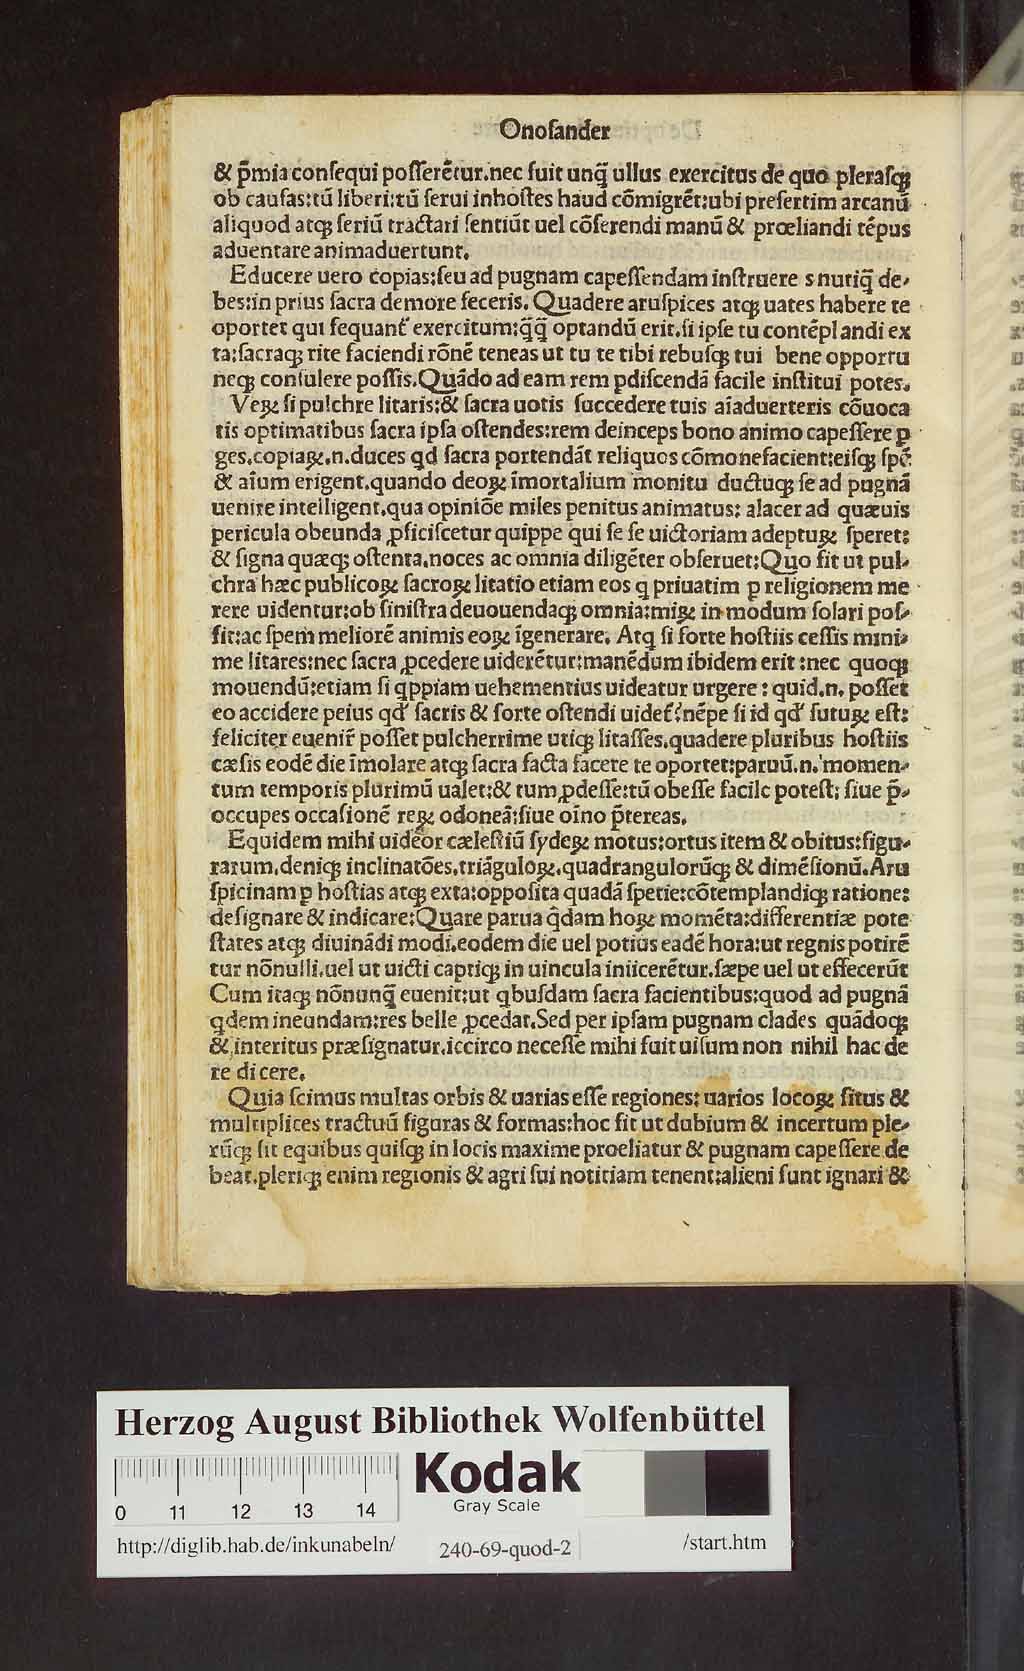 Onoſander
& p̄mia conſequi poſſerēt̄ur.nec fuit unq̄ ullus exercitus de quo pleraſqꝫ
ob cauſas:tū liberi:tū ſerui inhoſtes haud cōmigrēt:ubi preſertim arcanū
aliquod atqꝫ ſeriū tractari ſentiūt uel cōferendi manū & prœliandi tēpus
aduentare animaduertunt.
Educere uero copias:ſeu ad pugnam capeſſendam inſtruere s nutiq̄ de⸗
bes:in prius ſacra demore feceris. Quadere aruſpices atqꝫ uates habere te
oportet qui ſequant᷑ exercitum:q̄q̄ optandū erit.ſi ipſe tu contēpl andi ex
ta:ſacraqꝫ rite faciendi rōnē teneas ut tu te tibi rebuſqꝫ tui bene opportu
neqꝫ conſulere poſſis.Quādo ad eam rem ꝑdiſcendā facile inſtitui potes.
Veꝝ ſi pulchre litaris:& ſacra uotis ſuccedere tuis aīaduerteris cōuoca
tis optimatibus ſacra ipſa oſtendes:rem deinceps bono animo capeſſere ꝑ
ges.copiaꝝ.n.duces qd ſacra portendāt reliquos cōmonefacient:eiſqꝫ ſpē
& aīum erigent.quando deoꝝ īmortalium monitu ductuqꝫ ſe ad pugnā
uenire intelligent.qua opiniōe miles penitus animatus: alacer ad quæuis
pericula obeunda ꝓficiſcetur quippe qui ſe ſe uictoriam adeptuꝝ ſperet:
& ſigna quæqꝫ oſtenta.noces ac omnia diligēter obſeruet:Quo fit ut pul⸗
chra hæc publicoꝝ ſacroꝝ litatio etiam eos q priuatim ꝑ religionem me
rere uidentur:ob ſiniſtra deuouendaqꝫ omnia:miꝝ in modum ſolari poſ⸗
ſit:ac ſpem meliorē animis eoꝝ īgenerare. Atqꝫ ſi forte hoſtiis ceſſis mini⸗
me litares:nec ſacra ꝓcedere uiderētur:manēdum ibidem erit :nec quoqꝫ
mouendū:etiam ſi qppiam uehementius uideatur urgere : quid.n. poſſet
eo accidere peius qd᷑ ſacris & ſorte oſtendi uidet᷑?nēpe ſi id qd᷑ futuꝝ eſt:
feliciter euenir̄ poſſet pulcherrime utiqꝫ litaſſes.quadere pluribus hoſtiis
cæſis eodē die īmolare atqꝫ ſacra facta facere te oportet:paruū.n. momen⸗
tum temporis plurimū ualet:& tum ꝓdeſſe:tū obeſſe facile poteſt; ſiue p̄⸗
occupes occaſionē reꝝ odoneā:ſiue oīno p̄tereas.
Equidem mihi uideor cæleſtiū ſydeꝝ motus:ortus item & obitus:figu⸗
rarum.deniqꝫ inclinatōes.triāguloꝝ.quadrangulorūqꝫ & dimēſionū.Aru
ſpicinam ꝑ hoſtias atqꝫ exta:oppoſita quadā ſpetie:cōtemplandiqꝫ ratione:
deſignare & indicare:Quare parua q̄dam hoꝝ momēta:differentiæ pote
ſtates atqꝫ diuinādi modi.eodem die uel potius eadē hora:ut regnis potirē
tur nōnulli.uel ut uicti captiqꝫ in uincula iniicerētur.ſæpe uel ut effecerūt
Cum itaqꝫ nōnunq̄ euenit:ut qbuſdam ſacra facientibus:quod ad pugnā
qdem ineundam:res belle ꝓcedat.Sed per ipſam pugnam clades quādoqꝫ
& interitus præſignatur.iccirco neceſſe mihi fuit uiſum non nihil hac de
re di cere.
Quia ſcimus multas orbis & uarias eſſe regiones: uarios locoꝝ ſitus &
multiplices tractuū figuras & formas:hoc fit ut dubium & incertum ple⸗
rūqꝫ ſit equibus quiſqꝫ in locis maxime proeliatur & pugnam capeſſere de
beat.pleriqꝫ enim regionis & agri ſui notitiam tenent:alieni ſunt ignari &
Herzog August Bibliothek Wolfenbüttel
0 11 12 13 14
Kodak
Gray Scale
http://diglib.hab.de/inkunabeln/ 240-69-quod-2 /start.htm